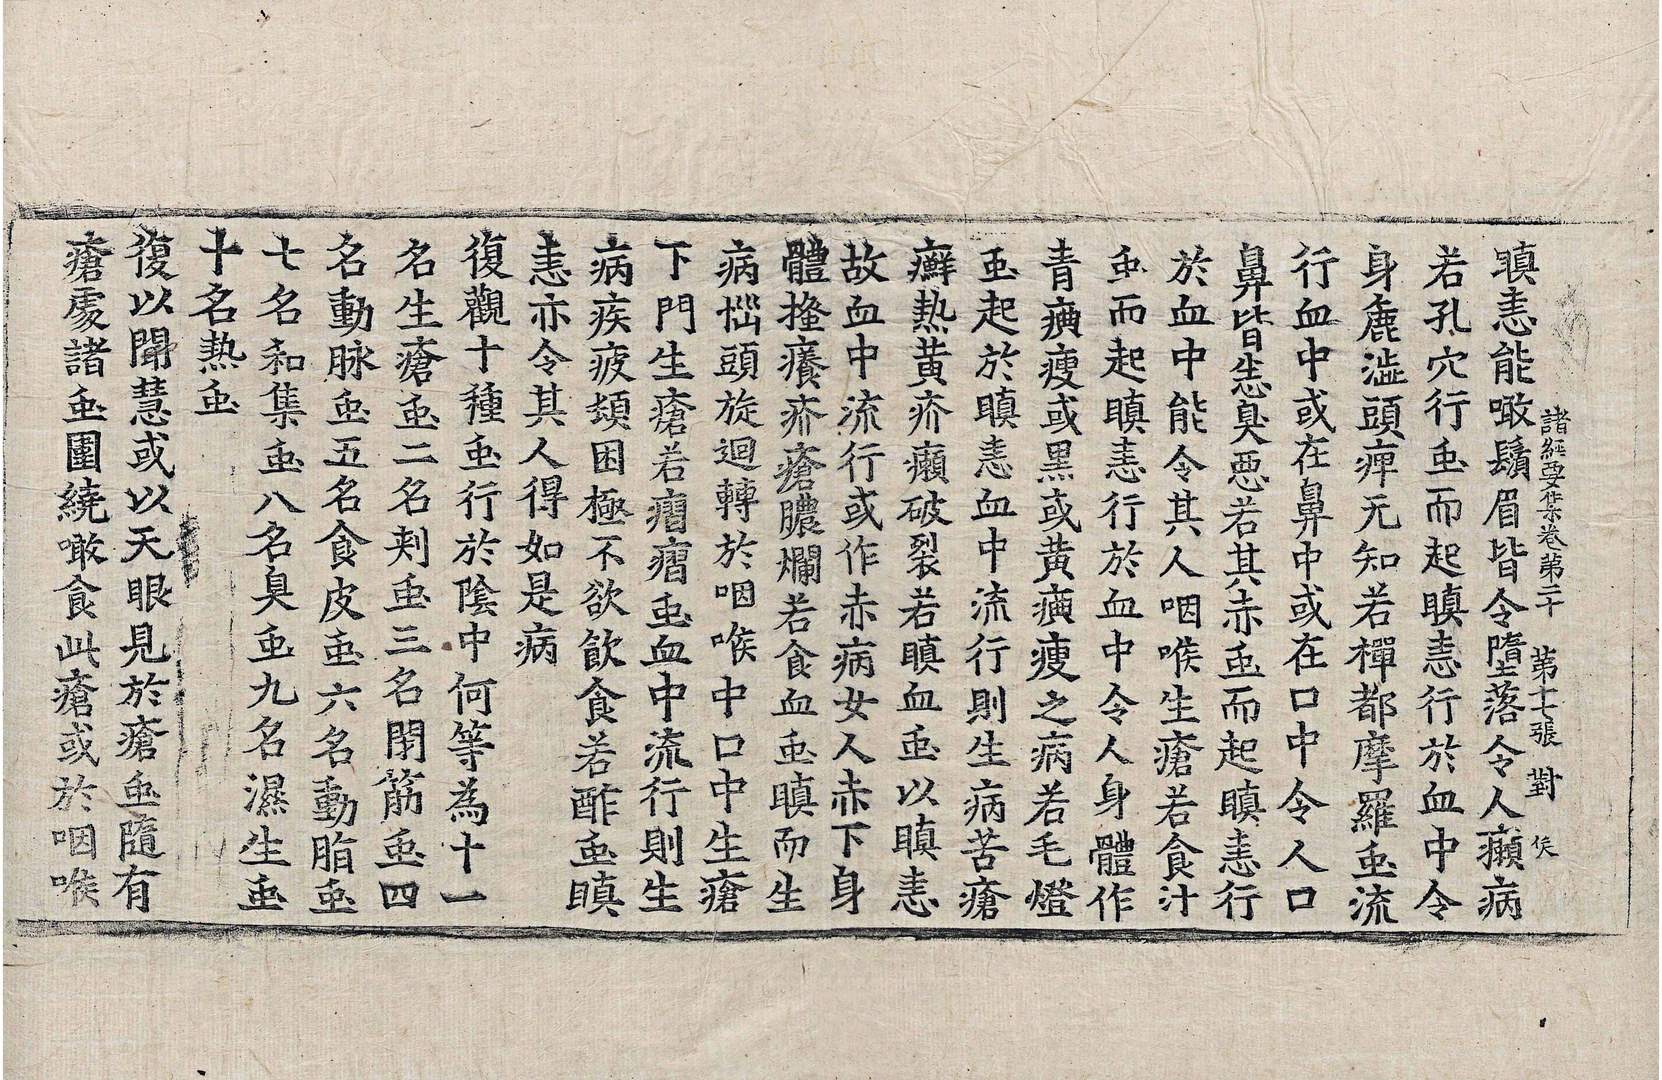 諸經要集卷第二十　第十七張　對　俟
瞋恚能噉鬚眉皆令墮落令人癩病
若孔穴行䖝而起瞋恚行於血中令
身麁澁頭痺无知若樿都摩羅䖝流
行血中或在鼻中或在口中令人口
鼻皆生惡臭惡若其赤䖝而起瞋恚行
於血中能令其人咽喉生瘡若食汁
䖝而起瞋恚行於血中令人身體作
青痶瘦或黑或黄癀瘦之病若毛燈
䖝起於瞋恚血中流行則生病苦瘡
癬熱黄疥癩破裂若瞋血䖝以瞋恚
故血中流行或作赤病女人赤下身
體搔癢疥瘡膿爛若食血䖝瞋而生
病惱頭旋迴轉於咽喉中口中生瘡
下門生瘡若瘤瘤䖝血中流行則生
病疾疲頓困極不欲飲食若酢䖝瞋
恚亦令其人得如是病
復觀十種䖝行於陰中何等為十一
名生瘡䖝二名刾䖝三名閇筋䖝四
名動脉䖝五名食皮䖝六名動脂䖝
七名和集䖝八名臭䖝九名濕生䖝
十名熱䖝
復以聞慧或以天眼見於瘡䖝隨有
瘡處諸䖝圍繞噉食此瘡或於咽喉